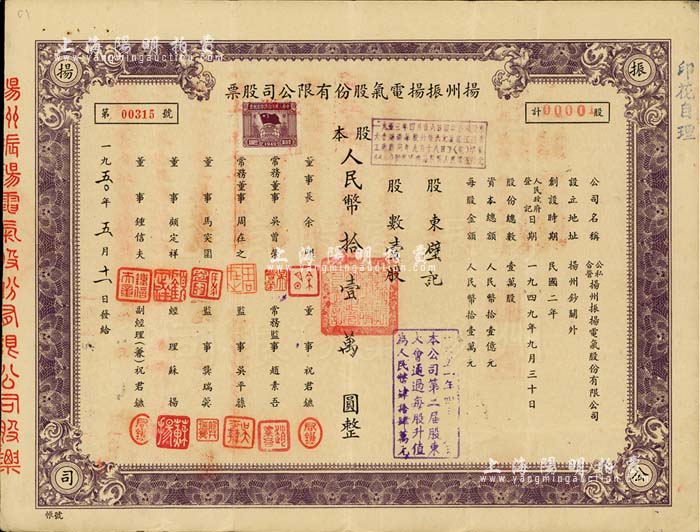 上海陽明拍賣
www.yangmingauction.com
揚
振
公
司
揚州振揚電氣股份有限公司股票
計 00001 股
第 00315 號
公司名稱 公私合營 揚州振揚電氣股份有限公司
設立地址 揚州鈔關外
創設時期 民國二年
人民政府登記日期 一九四九年九月三十日
股份總數 壹萬股
資本總額 人民幣拾壹億元
每股金額 人民幣拾壹萬元
股東 璧記
股數 壹股
股本人民幣拾壹萬圓整
本公司第二屆股東大會通過每股升值為人民幣肆拾肆萬元
董事長 余
董事 祝君鑣
常務董事 吳
常務監事 趙素吾
常務董事 周在之
監事 吳平蓀
董事 馬
監事 龔瑞英
董事 顧定祥
經理 蘇揚
董事 鍾信夫
副經理(兼) 祝君鑣
一九五〇年五月十一日發給
帳號
印花自理
揚州振揚電氣股份有限公司股票
上海陽明拍賣
www.yangmingauction.com
上海陽明拍賣
www.yangmingauction.com